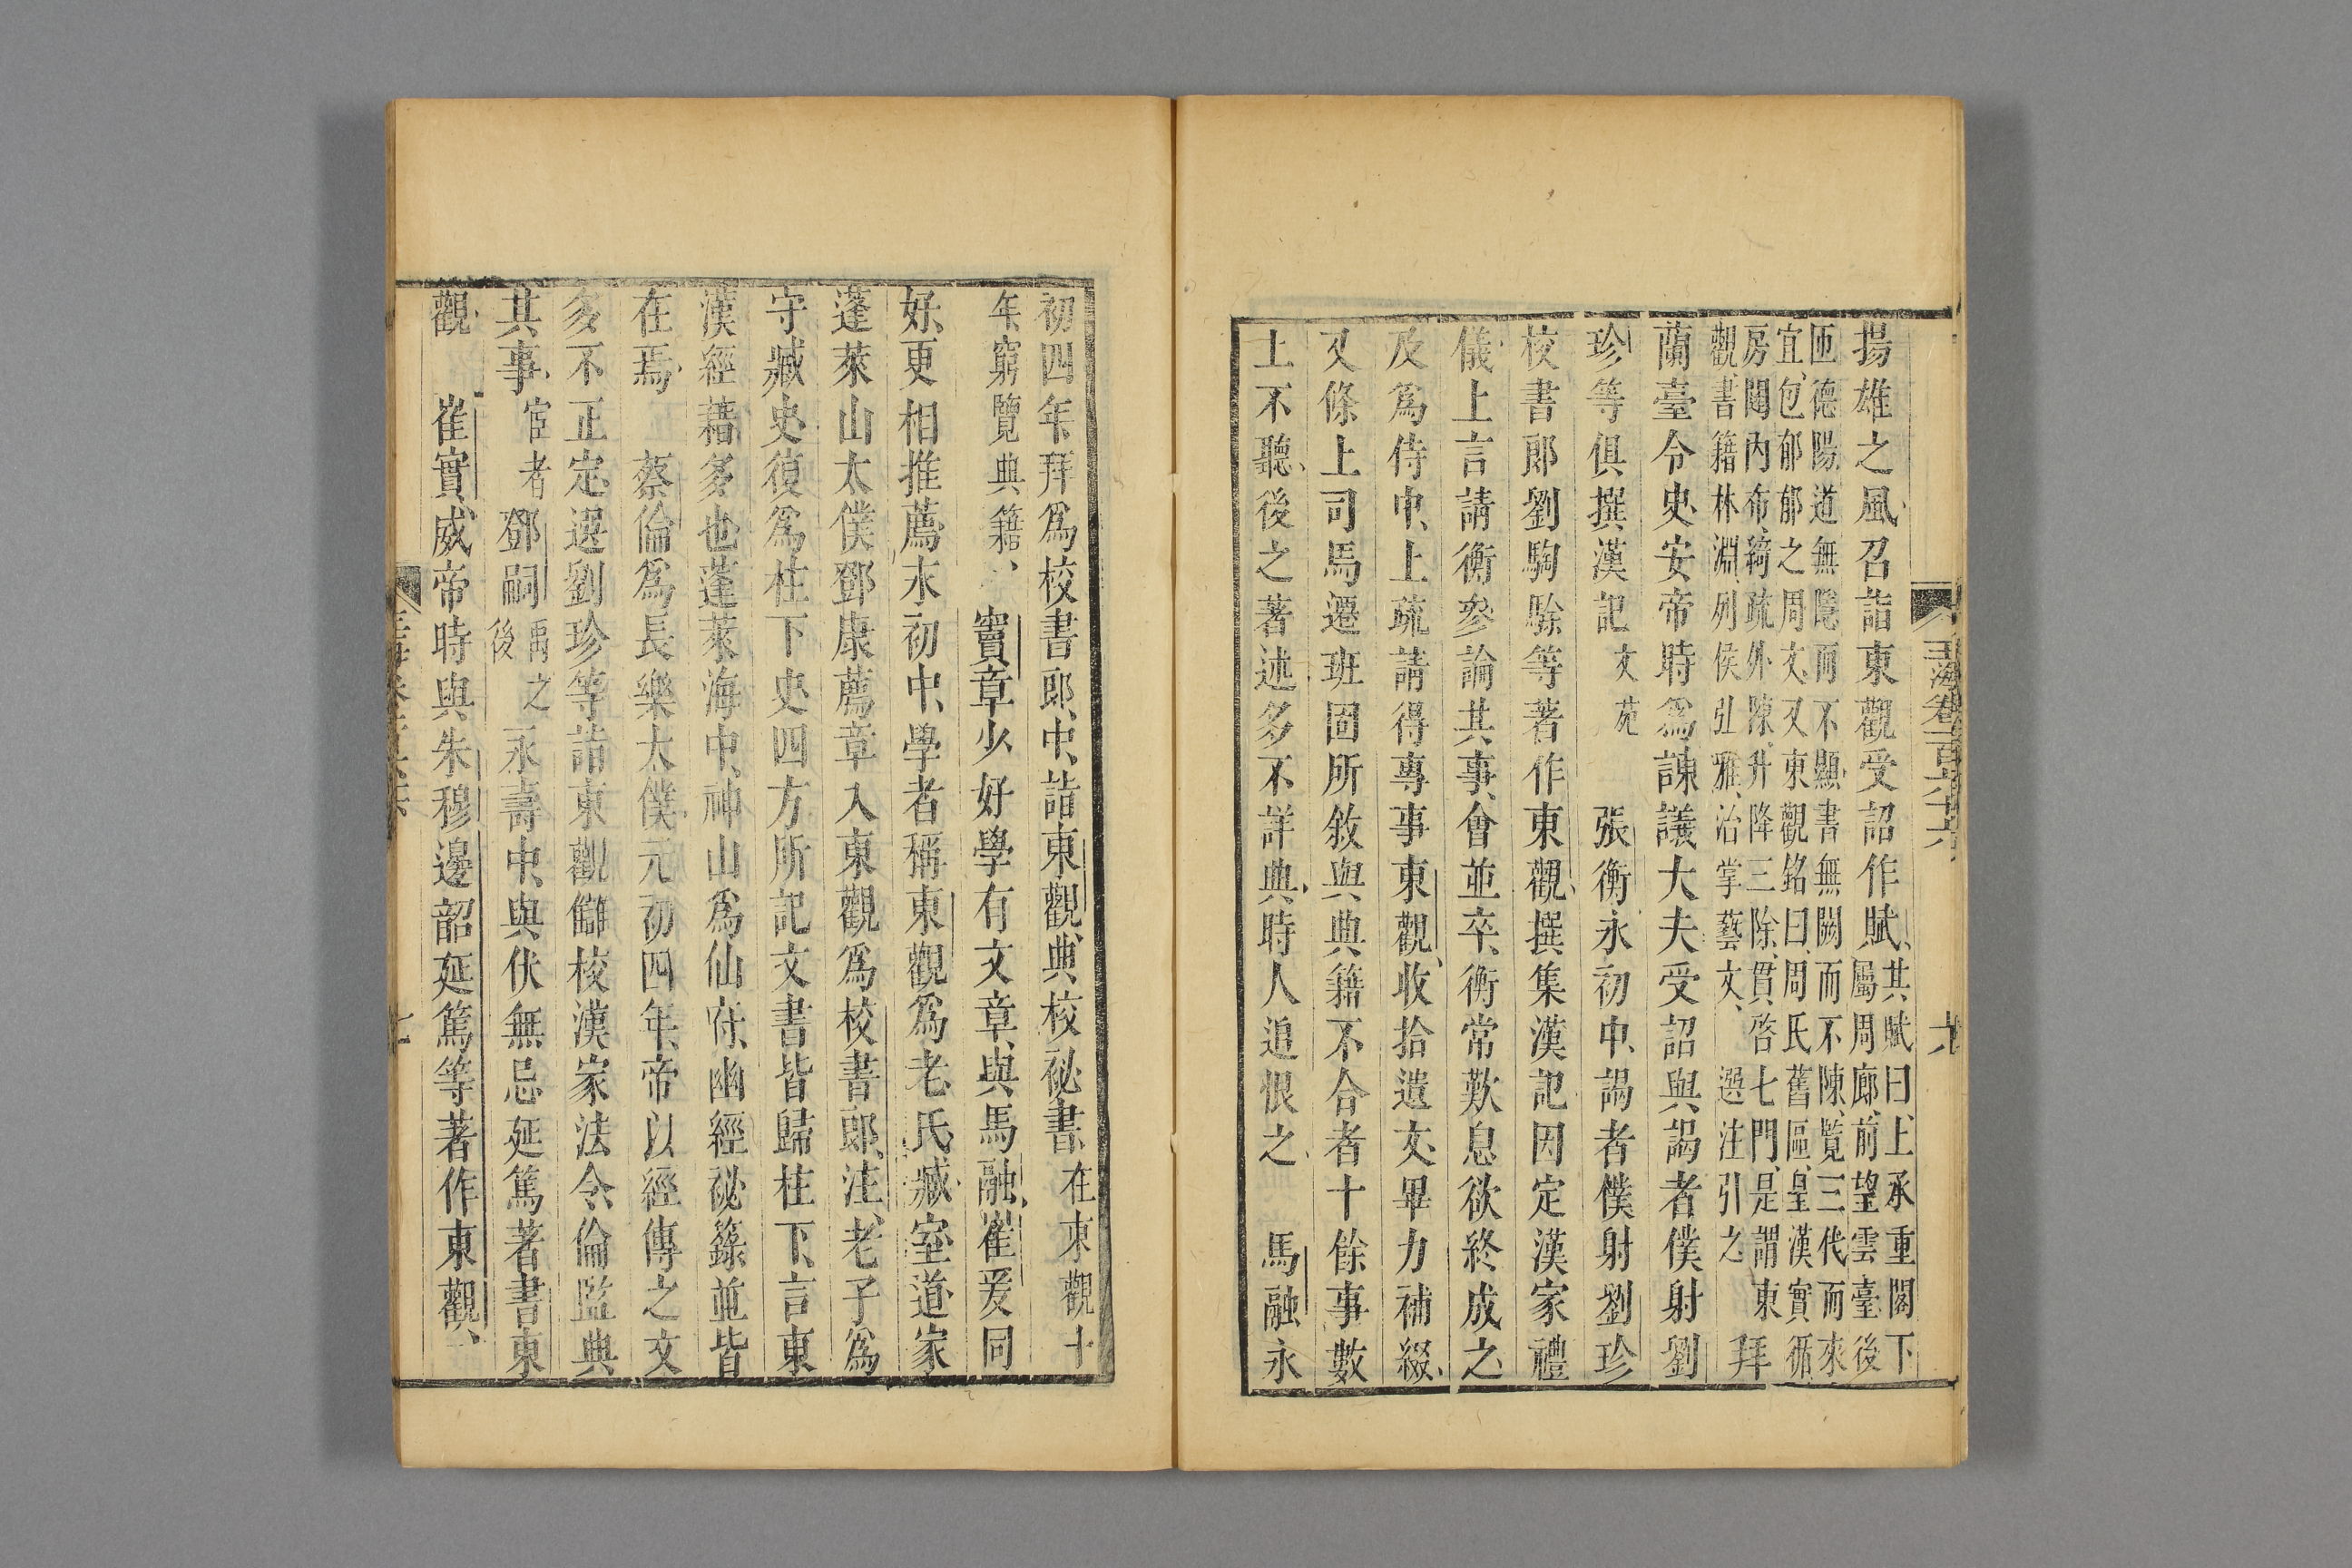 玉海卷一百六十六
揚雄之風召詣東觀受詔作賦其賦曰上承重閣下
屬周廊前望雲臺後
匝德陽道無隱而不顯書無闕而不陳覽三代而來
宜包郁郁之周文又東觀銘曰周氏舊區皇漢實循
房闥內布綺疏外陳升降三除貫啓七門是謂東
觀書籍林淵列侯弘雅治掌藝文選注引之拜
蘭臺令史安帝時爲諫議大夫受詔與謁者僕射劉
珍等俱撰漢記文苑 張衡永初中謁者僕射劉珍
校書郎劉騊駼等著作東觀撰集漢記因定漢家禮
儀上言請衡參論其事會並卒衡常歎息欲終成之
及爲侍中上疏請得專事東觀收拾遺文畢力補綴
又條上司馬遷班固所敘與典籍不合者十餘事數
上不聽後之著述多不詳典時人追恨之 馬融永
初四年拜爲校書郎中詣東觀典校祕書在東觀十
年窮覽典籍 竇章少好學有文章與馬融崔爰同
好更相推薦永初中學者稱東觀爲老氏臧室道家
蓬萊山太僕鄧康薦章入東觀爲校書郎注老子爲
守臧史復爲柱下史四方所記文書皆歸柱下言東
漢經籍多也蓬萊海中神山爲仙府幽經祕籙並皆
在焉 蔡倫爲長樂太僕元初四年帝以經傳之文
多不正定選劉珍等詣東觀讎校漢家法令倫監典
其事宦者 鄧嗣禹之後 永壽中與伏無忌延篤著書東
觀 崔寔威帝時與朱穆邊韶延篤等著作東觀